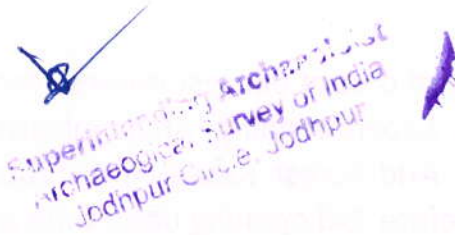 Superintending Archaeologist
Archaeogical Survey of India
Jodhpur Circle, Jodhpur